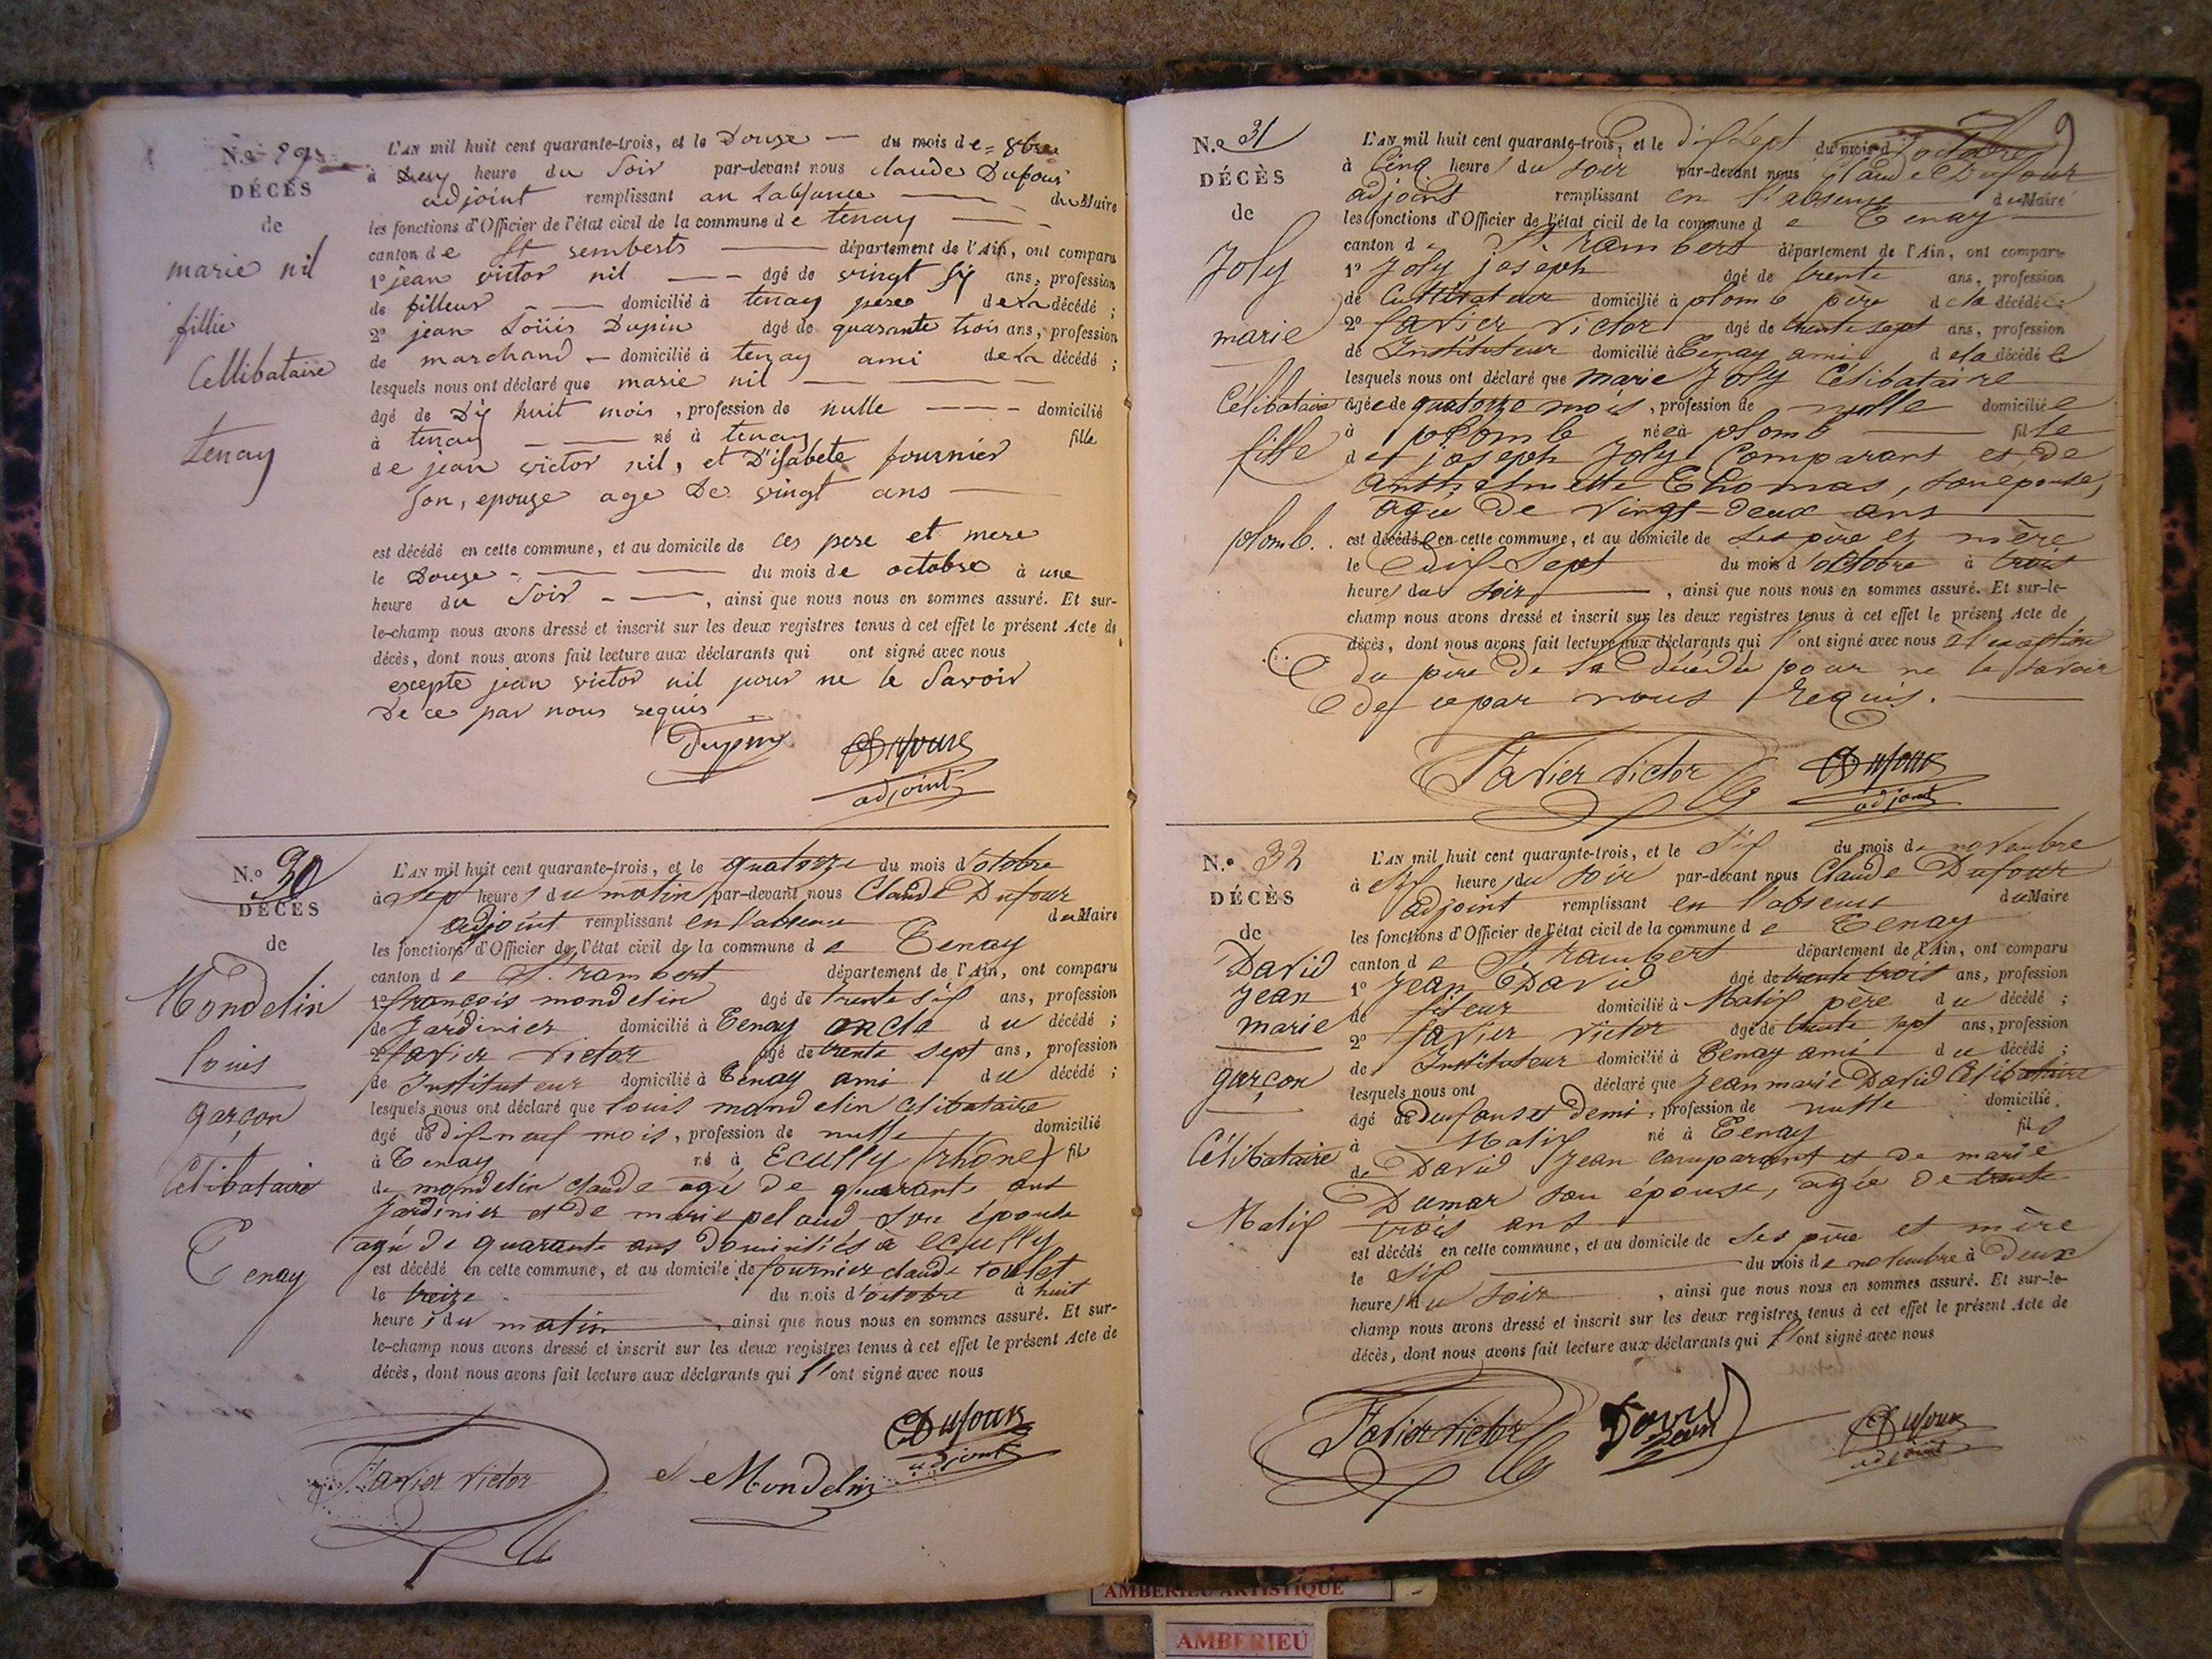 N.o 29
DÉCÈS
de
marie nil
fillie
Cellibataire
tenay
L'AN mil huit cent quarante-trois, et le Douze — du mois de = 8bre
à Deuy heure du Soir par-devant nous claude Dufour
adjoint remplissant an Labsance — du Maire
les fonctions d'Officier de l'état civil de la commune de tenay —
canton de St semberts — département de l'Ain, ont comparu
1o jean victor nil — âgé de vingt siy ans, profession
de filleur — domicilié à tenay pere de La décédé ;
2o jean Loüis Dupin âgé de quarante trois ans, profession
de marchand — domicilié à tenay ami de La décédé ;
lesquels nous ont déclaré que marie nil —
âgé de Diy huit mois, profession de nulle — domicilié
à tenay — né à tenay fille
de jean victor nil, et D'isabete fournier
son, epouze age De vingt ans —
est décédé en cette commune, et au domicile de ces pere et mere
le Douze — du mois de octobre à une
heure du Soir —, ainsi que nous nous en sommes assuré. Et sur-
le-champ nous avons dressé et inscrit sur les deux registres tenus à cet effet le présent Acte de
décès, dont nous avons fait lecture aux déclarants qui ont signé avec nous
escepte jean victor nil pour ne le Savoir
De ce par nous requis
CDufour
adjoint
N.o 30
DÉCÈS
de
Mondelin
louis
garçon
Célibataire
Tenay
L'AN mil huit cent quarante-trois, et le quatorze du mois d'octobre
à sept heures du matin par-devant nous Claude Dufour
adjoint remplissant en l'absence du Maire
les fonctions d'Officier de l'état civil de la commune de Tenay
canton de St. rambert département de l'Ain, ont comparu
1o françois mondelin âgé de trente six ans, profession
de Jardinier domicilié à Tenay oncle du décédé ;
2o favier victor âgé de trente sept ans, profession
de Instituteur domicilié à Tenay ami du décédé ;
lesquels nous ont déclaré que louis mondelin Célibataire
âgé de dix-neuf mois, profession de nulle domicilié
à Tenay né à Ecully (rhône) fils
de mondelin claude agé de quarante ans
Jardinier et de marie pelaud son épouse
agée de quarante ans domiciliés à ecully
est décédé en cette commune, et au domicile de fournier claude
le treize du mois d'octobre à huit
heures du matin, ainsi que nous nous en sommes assuré. Et sur-
le-champ nous avons dressé et inscrit sur les deux registres tenus à cet effet le présent Acte de
décès, dont nous avons fait lecture aux déclarants qui l'ont signé avec nous
Favier victor Mondelin CDufour
adjoint
9
N.o 31
DÉCÈS
de
Joly
marie
Célibataire
fille
plomb.
L'AN mil huit cent quarante-trois, et le dix sept du mois d'octobre
à Cinq heures du soir par-devant nous Claude Dufour
adjoint remplissant en l'absence du Maire
les fonctions d'Officier de l'état civil de la commune de Tenay
canton de St. rambert département de l'Ain, ont comparu
1o Joly joseph âgé de trente ans, profession
de Cultivateur domicilié à plomb père de la décédée ;
2o favier victor âgé de trente sept ans, profession
de Instituteur domicilié à Tenay ami de la décédée
lesquels nous ont déclaré que marie Joly Célibataire
âgée de quatorze mois, profession de nulle domiciliée
à plomb née à plomb fille
de joseph Joly Comparant et de
Anthelmette Thomas, son épouse,
agée de vingt-deux ans
est décédée en cette commune, et au domicile de ses père et mère
le dix Sept du mois d'octobre à trois
heures du soir, ainsi que nous nous en sommes assuré. Et sur-le-
champ nous avons dressé et inscrit sur les deux registres tenus à cet effet le présent Acte de
décès, dont nous avons fait lecture aux déclarants qui l'ont signé avec nous à l'exception
du père de la décédée pour ne le savoir
de ce par nous requis.
Favier victor CDufour
adjoint
N.o 32
DÉCÈS
de
David
Jean
marie
garçon
Célibataire
Malix
L'AN mil huit cent quarante-trois, et le Six du mois de novembre
à Six heures du soir par-devant nous Claude Dufour
adjoint remplissant en l'absence du Maire
les fonctions d'Officier de l'état civil de la commune de Tenay
canton de St rambert département de l'Ain, ont comparu
1o Jean David âgé de trente trois ans, profession
de fileur domicilié à Malix père du décédé ;
2o favier victor âgé de trente sept ans, profession
de Instituteur domicilié à Tenay ami du décédé ;
lesquels nous ont déclaré que Jean marie David Célibataire
âgé de Deux ans et demi, profession de nulle domicilié
à Malix né à Tenay fils
de David Jean comparant et de marie
Dumar son épouse, agée de trente
trois ans
est décédé en cette commune, et au domicile de ses père et mère
le Six du mois de novembre à Deux
heures du soir, ainsi que nous nous en sommes assuré. Et sur-le-
champ nous avons dressé et inscrit sur les deux registres tenus à cet effet le présent Acte de
décès, dont nous avons fait lecture aux déclarants qui l'ont signé avec nous
Favier victor David Jean CDufour
adjoint
AMBERIEU ARTISTIQUE
AMBERIEU